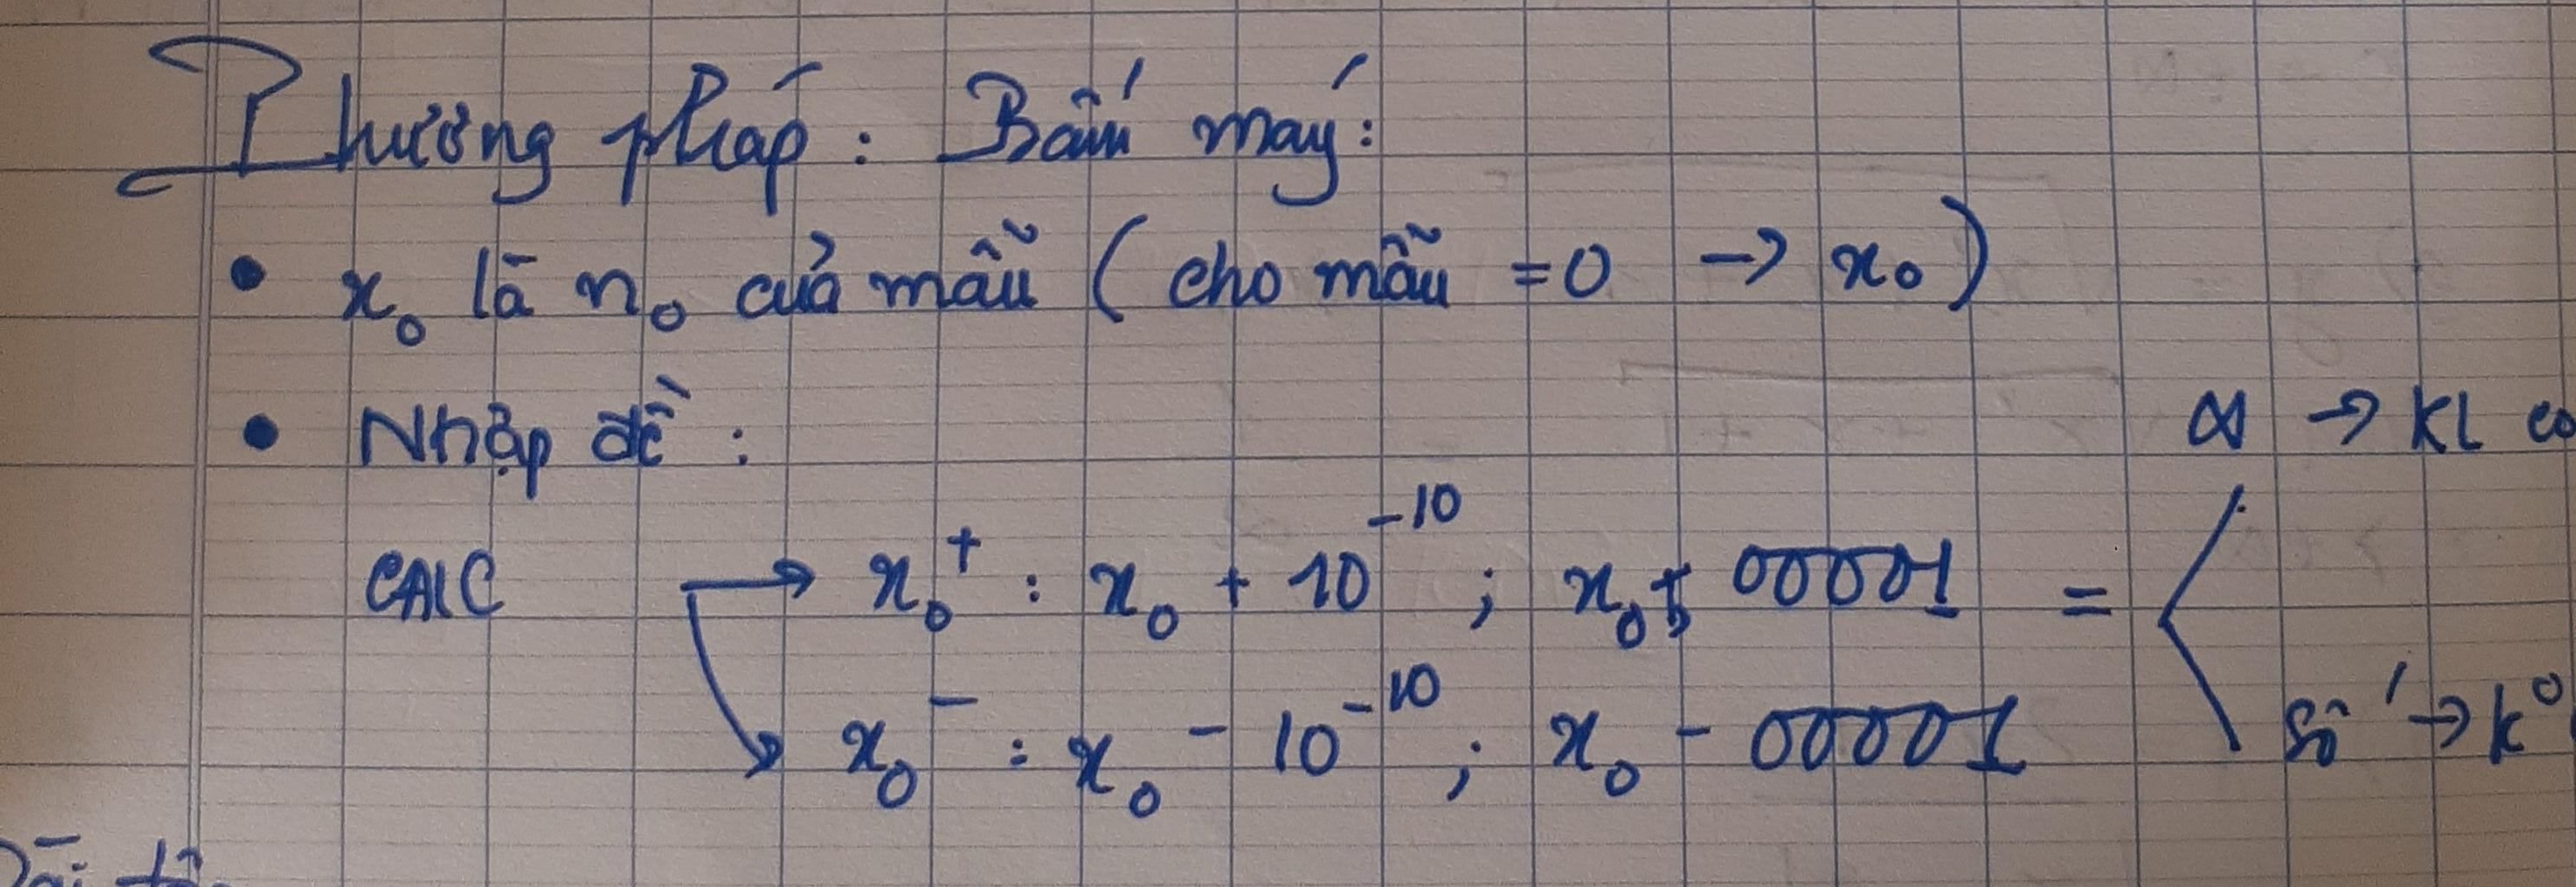 Phương pháp : Bấm máy :
• x₀ là n₀ của mẫu ( cho mẫu = 0 → x₀ )
• Nhập đề :
∞ → KL có
CALC → x₀⁺ : x₀ + 10⁻¹⁰ ; x₀ + 0,00001 =
→ x₀⁻ : x₀ - 10⁻¹⁰ ; x₀ - 0,00001
Số → K⁰
Bài